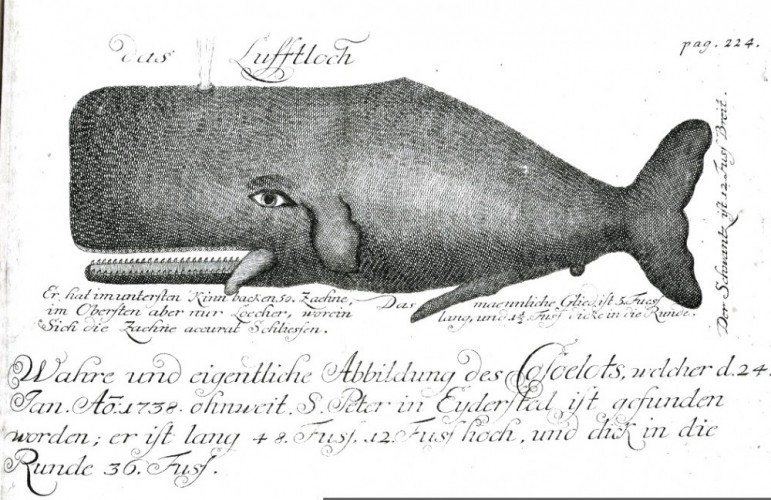 das Lufftloch
pag. 224.
Der Schwantz ist 12 Fuss Breit.
Er hat im untersten Kinn backen 50. Zaehne,
im Obersten aber nur Loecher, worein
Sich die Zaehne accurat Schliessen.
Das maennliche Glied ist 5 Fuss
lang, und 1½ Fuss dicke in die Runde.
Wahre und eigentliche Abbildung des Cosoelots, welcher d. 24.
Jan. Ao: 1738. ohnweit S. Peter in Eydersted ist gefunden
worden; er ist lang 48. Fuss. 12. Fuss hoch, und dick in die
Runde 36. Fuss.